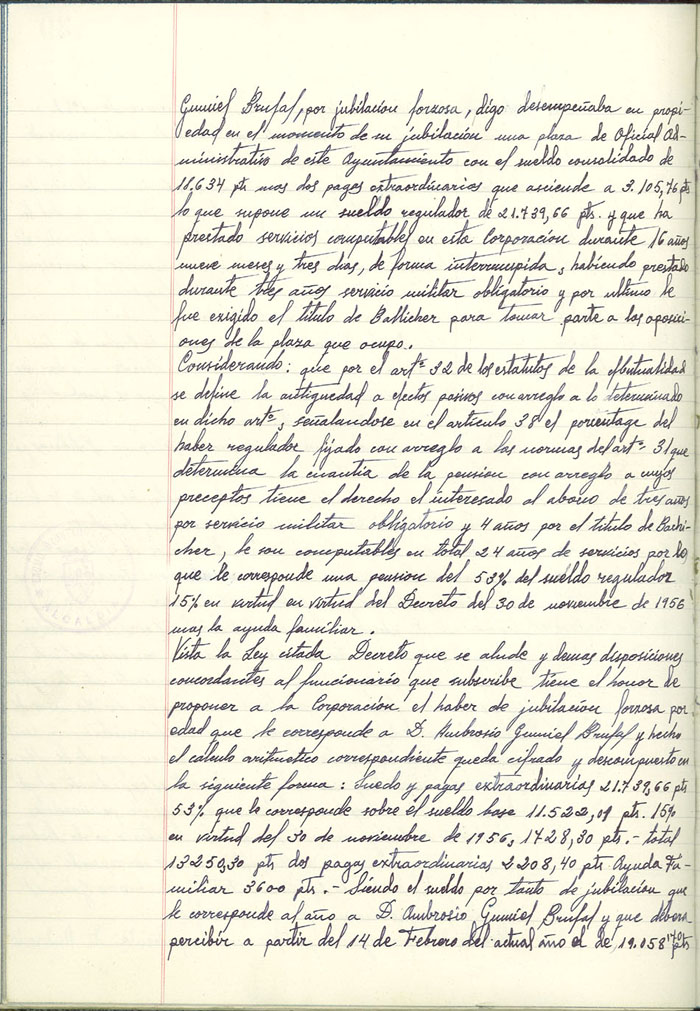 Gumiel Brufal, por jubilacion forzosa, digo desempeñaba en propi-
edad en el momento de su jubilacion una plaza de Oficial Ad-
ministrativo de este Ayuntamiento con el sueldo consolidado de
18.634 pts mas dos pages extraordinarias que asciende a 3.105,76 pts
lo que supone un sueldo regulador de 21.739,66 pts. y que ha
prestado servicios computables en esta Corporacion durante 16 años
nueve meses y tres dias, de forma interrumpida, habiendo prestado
durante tres años servicio militar obligatorio y por ultimo le
fue exigido el titulo de Bachicher para tomar parte a las oposici-
ones de la plaza que ocupo.
Considerando: que por el artº 32 de los estatutos de la Mutualidad
se define la antiguedad a efectos pasivos con arreglo a lo determinado
en dicho artº, señalandose en el articulo 38 el porcentage del
haber regulador fijado con arreglo a las normas del artº 31 que
determina la cuantia de la pension con arreglo a cuyos
preceptos tiene el derecho el interesado al abono de tres años
por servicio militar obligatorio y 4 años por el titulo de Bachi-
cher, le son computables en total 24 años de servicios por lo
que le corresponde una pension del 53% del sueldo regulador
15% en virtud en virtud del Decreto del 30 de noviembre de 1956
mas la ayuda familiar.
Vista la Ley citada Decreto que se alude y demas disposiciones
concordantes al funcionario que subscribe tiene el honor de
proponer a la Corporacion el haber de jubilacion forzosa por
edad que le corresponde a D. Ambrosio Gumiel Brufal y hecho
el calculo aritmetico correspondiente queda cifrado y descompuesto en
la siguiente forma: Suedo y pagas extraordinarias 21.739,66 pts
53% que le corresponde sobre el sueldo base 11.522,01 pts. 15%
en virtud del 30 de noviembre de 1956, 1728,30 pts.- total
13250,30 pts dos pagas extraordinarias 2208,40 pts Ayuda Fa-
miliar 3600 pts.- Siendo el sueldo por tanto de jubilacion que
le corresponde al año a D. Ambrosio Gumiel Brufal y que debera
percibir a partir del 14 de Febrero del actual año el de 19.058'70 pts